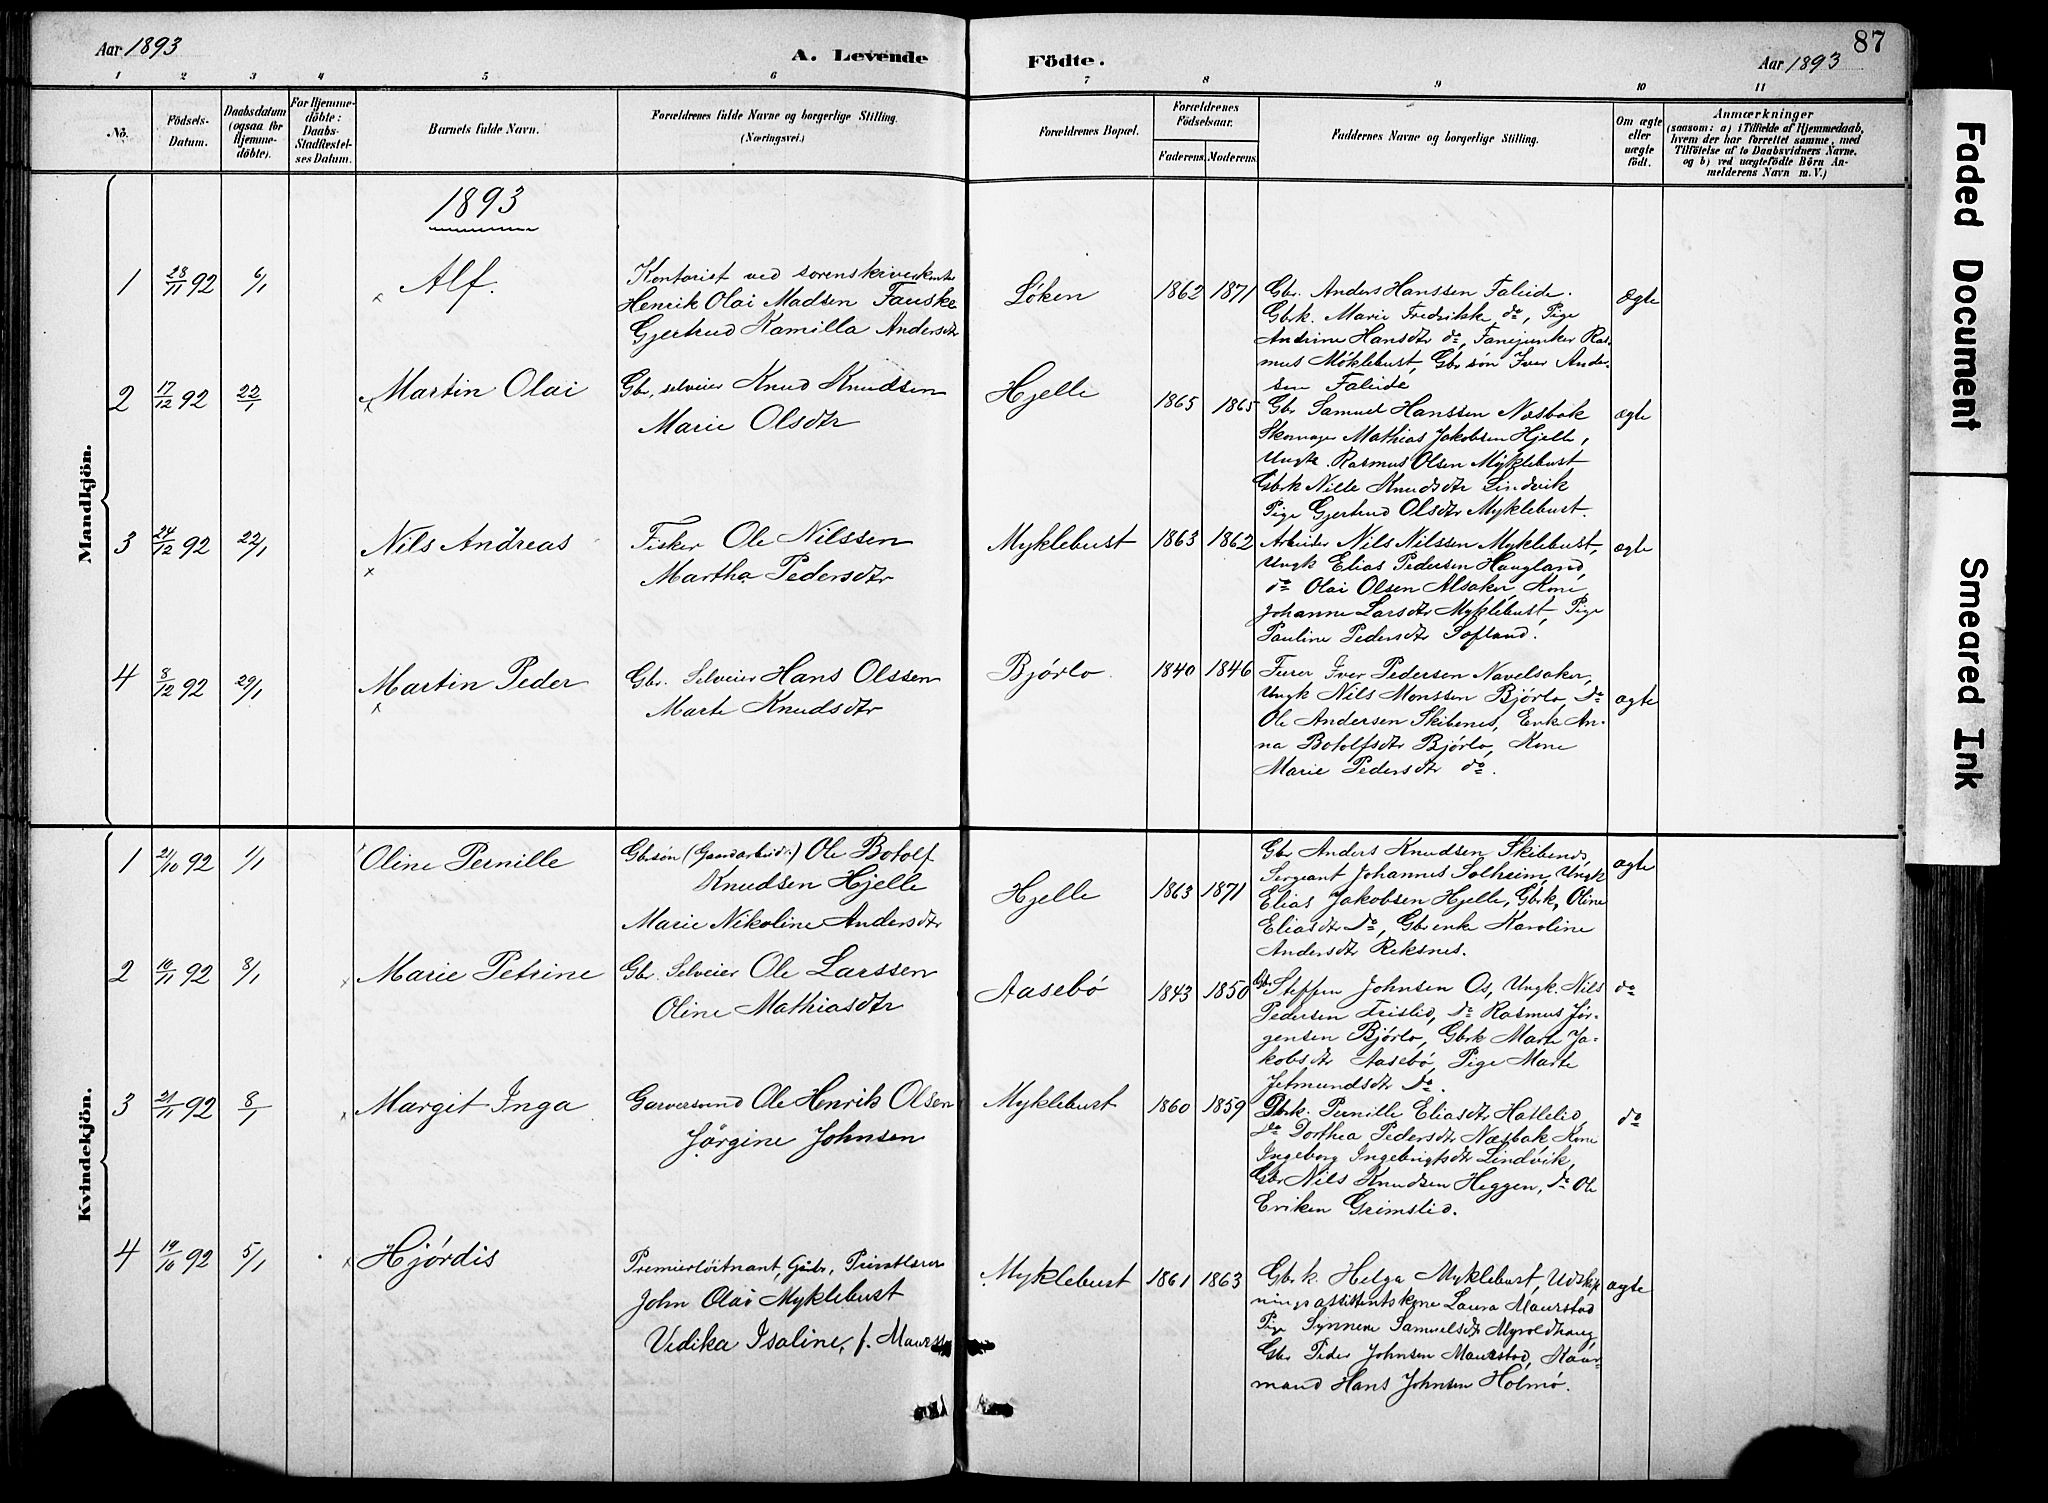 Aar 1893
A. Levende Födte.
Aar 1893
87
1 2 3 4 5 6 7 8 9 10 11
No.
Födsels-
Datum.
Daabsdatum
(ogsaa for
Hjemme-
döbte).
For Hjemme-
döbte:
Daabs-
Stadfæstel-
ses Datum.
Barnets fulde Navn.
Forældrenes fulde Navne og borgerlige Stilling.
(Næringsvei.)
Forældrenes Bopæl.
Forældrenes
Födselsaar.
Faderens. Moderens.
Faddernes Navne og borgerlige Stilling.
Om ægte
eller
uægte
født.
Anmærkninger
(saasom: a) i Tilfælde af Hjemmedaab,
hvem der har forrettet samme, med
Tilföielse af to Daabsvidners Navne,
og b) ved uægtefödte Börn An-
melderens Navn m. V.)
Mandkjön.
1893
1 28/11 92 6/1 Alf.
Kontorist ved sorenskriverkontor
Henrik Olai Madsen Fauske
Gjertrud Kamilla Andersdtr
Löken 1862 1871
Gbr. Anders Hanssen Faleide.
Gbrk. Marie Fredrikke do, Pige
Andrine Hansdtr do, Fanejunker Ras-
mus Möklebust, Gbr søn Iver Ander-
sen Faleide
Ægte
2 17/12 92 22/1 Martin Olai
Gbr, selveier Knud Knudsen
Marie Olsdtr
Hjelle 1865 1865
Gbr Samuel Hanssen Næsbak
Skomager Mathias Jakobsen Hjelle,
Ungk. Rasmus Olsen Myklebust
Gbrk Nille Knudsdtr Lindvik
Pige Gjertrud Olsdtr Myklebust.
ægte
3 24/12 92 22/1 Nils Andreas
Fisker Ole Nilssen
Martha Pedersdtr
Myklebust 1863 1862
Arbeider Nils Nilssen Myklebust,
Ungk Elias Pedersen Haugland,
do Olai Olsen Alsaker Kone
Johanne Larsdtr Myklebust, Pige
Pauline Pedersdtr Sofland.
ægte
4 8/12 92 29/1 Martin Peder
Gbr. Selveier Hans Olssen
Marte Knudsdtr
Bjørlo. 1840 1846
Furer Iver Pedersen Navelsaker,
Ungk Nils Monssen Bjørlo, do
Ole Andersen Skibenes, Enk An-
na Botolfsdtr Bjørlo, Kone
Marie Pedersdtr do.
ægte
Kvindekjön.
1 21/10 92 1/1 Oline Pernille
Gbrsøn (Gaardarbeid.) Ole Botolf
Knudsen Hjelle
Marie Nikoline Andersdtr
Hjelle 1863 1871
Gbr Anders Knudsen Skibenes,
Sergeant Johannes Solheim, Ungk
Elias Jakobsen Hjelle, Gbrk, Oline
Eliasdtr do, Gbrenke Karoline
Andersdtr Reksnes.
ægte
2 10/11 92 8/1 Marie Petrine
Gbr. Selveier Ole Larssen
Oline Mathiasdtr
Aasebö 1843 1850
Gbr Steffen Johnsen Os, Ungk. Nils
Pedersen Frislid, do Rasmus Jør-
gensen Bjørlo, Gbrk Marte Ja-
kobsdtr Aasebö, Pige Marte
Jetmundsdtr do.
do
3 21/11 92 8/1 Margit Inga
Garversvend Ole Henrik Olsen
Jørgine Johnsen
Myklebust 1860 1859
Gbrk. Pernille Eliasdtr Hatlelid,
do Dorthea Pedersdtr Næsbak Kone
Ingeborg Ingebrigtsdtr Lindvik,
Gbr Nils Knudsen Heggen, do Ole
Eriksen Grimslid.
do
4 19/10 92 5/1 Hjördis
Premierlöitnant, Gbr, Privatlærer
John Olai Myklebust
Vedika Isaline, f.
Myklebust 1861 1863
Gbrk. Helga Myklebust, Udskif-
ningsassistentskone Laura Maurstad
Pige Synneve Samuelsdtr Myroldhaug
Gbr Peder Johnsen Maurstad, Kaar-
mand Hans Johnsen Holmø.
ægte
Faded Document
Smeared Ink